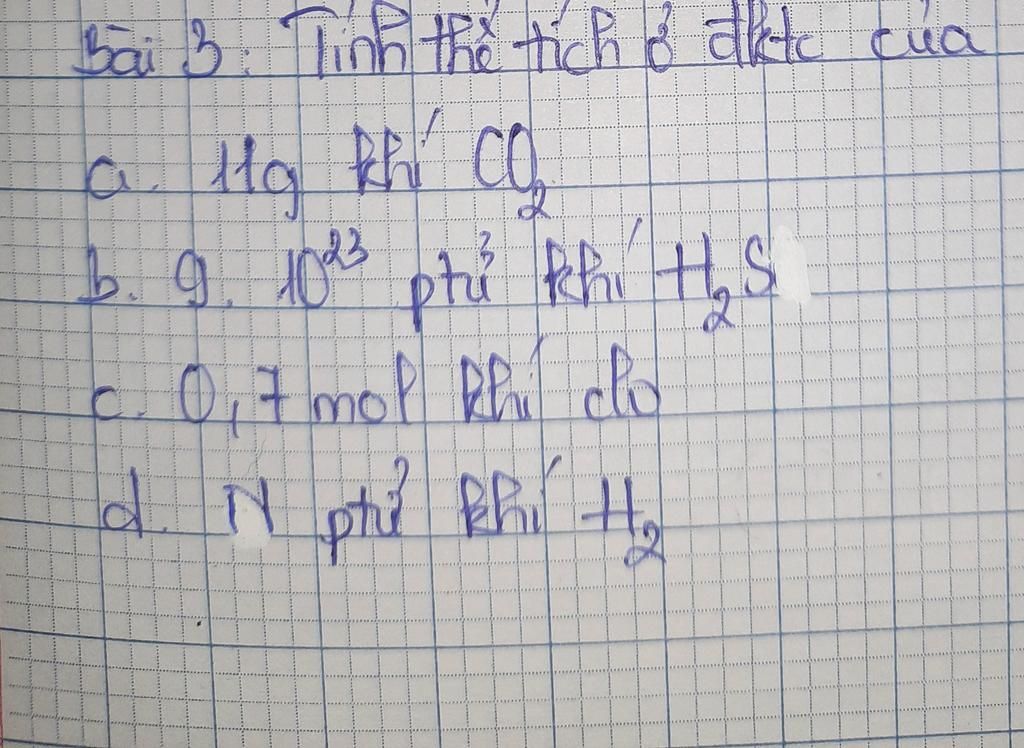 Bài 3: Tính thể tích ở đktc của
a. 11g khí CO₂
b. 9. 10²³ ptử khí H₂S
c. 0,7 mol khí clo
d. N ptử khí H₂